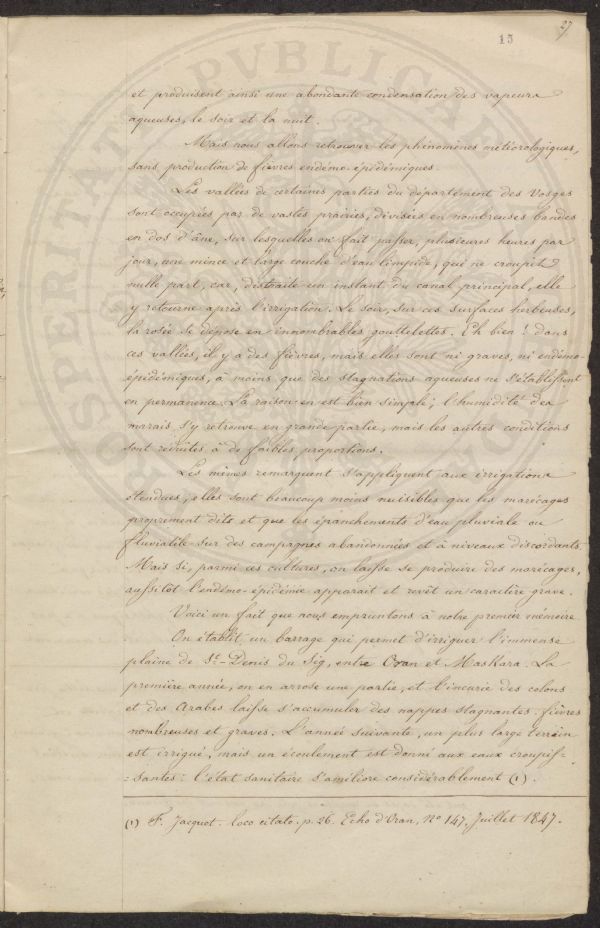 27
15
et produisent ainsi une abondante condensation des vapeurs
aqueuses, le soir et la nuit.
Mais nous allons retrouver les phénomènes météorologiques,
sans production de fièvres endémo-épidémiques.
Les vallées de certaines parties du département des Vosges
sont occupées par de vastes prairies, divisées en nombreuses bandes
en dos d'âne, sur lesquelles on fait passer, plusieurs heures par
jour, une mince et large couche d'eau limpide, qui ne croupit
nulle part, car, distraite un instant du canal principal, elle
y retourne après l'irrigation. Le soir, sur ces surfaces herbeuses,
la rosée se dépose en innombrables gouttelettes. Eh bien! dans
ces vallées, il y a des fièvres, mais elles sont ni graves, ni endémo-
épidémiques, à moins que des stagnations aqueuses ne s'établissent
en permanence. La raison en est bien simple; l'humidité des
marais s'y retrouve en grande partie, mais les autres conditions
sont réduites à de faibles proportions.
Les mêmes remarquent s'appliquent aux irrigations
étendues, elles sont beaucoup moins nuisibles que les marécages
proprement dits et que les épanchements d'eau pluviale ou
fluviatile sur des campagnes abandonnées et à niveaux discordants.
Mais si, parmi ces cultures, on laisse se produire des marécages,
aussitôt l'endémo-épidémie apparait et revêt un caractère grave.
Voici un fait que nous empruntons à notre premier mémoire
On établit un barrage qui permet d'irriguer l'immense
plaine de St-Denis du Sig, entre Oran et Maskara. La
première année, on en arrose une partie, et l'incurie des colons
et des Arabes laisse s'accumuler des nappes stagnantes: fièvres
nombreuses et graves. L'année suivante, un plus large terrain
est irrigué, mais un écoulement est donné aux eaux croupis-
=santes: l'état sanitaire s'améliore considérablement (1).
(1) F. Jacquot. loco citato. p. 26. Echo d'Oran, No 147, Juillet 1847.
PROSPERITATI PUBLICAE